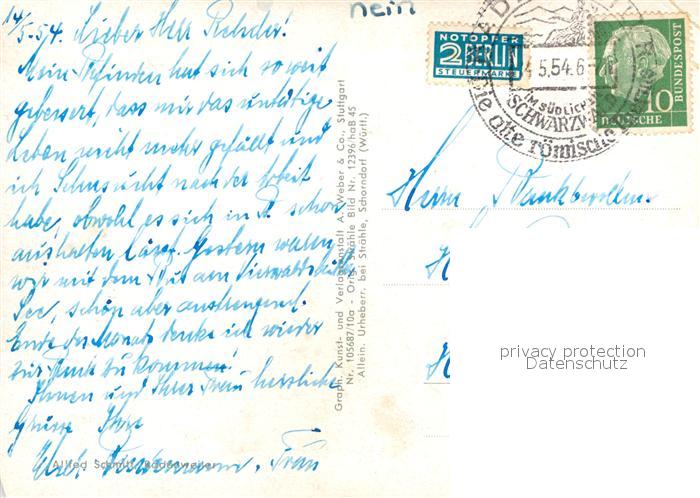 nein
14/5.54. Lieber Herr
Mein Befinden hat sich so weit
gebessert, dass mir das untätige
Leben nicht mehr gefällt und
ich Sehnsucht nach der Arbeit
habe, obwohl es sich in B. schon
aushalten lässt. Gestern waren
wir mit dem am Vierwaldstätter
See, schön aber anstrengend.
Ende des Monats denke ich wieder
zur Bank zu kommen!
Ihnen und Ihrer Frau herzliche
Grüsse Ihre
u. Frau
Alfred Schmitt, Badenweiler
Graph. Kunst- und Verlagsanstalt A. Weber & Co., Stuttgart
Nr. 105687/10a - Orig. Strähle Bild Nr. 12396/haB 45
Allein. Urheberr. bei Strähle, Schorndorf (Württ.)
NOTOPFER
2 BERLIN
STEUERMARKE
4.5.54.6
IM SÜDLICHEN
SCHWARZW
die alte römische
10
DEUTSCHE
BUNDESPOST
Herrn
H
H
privacy protection
Datenschutz